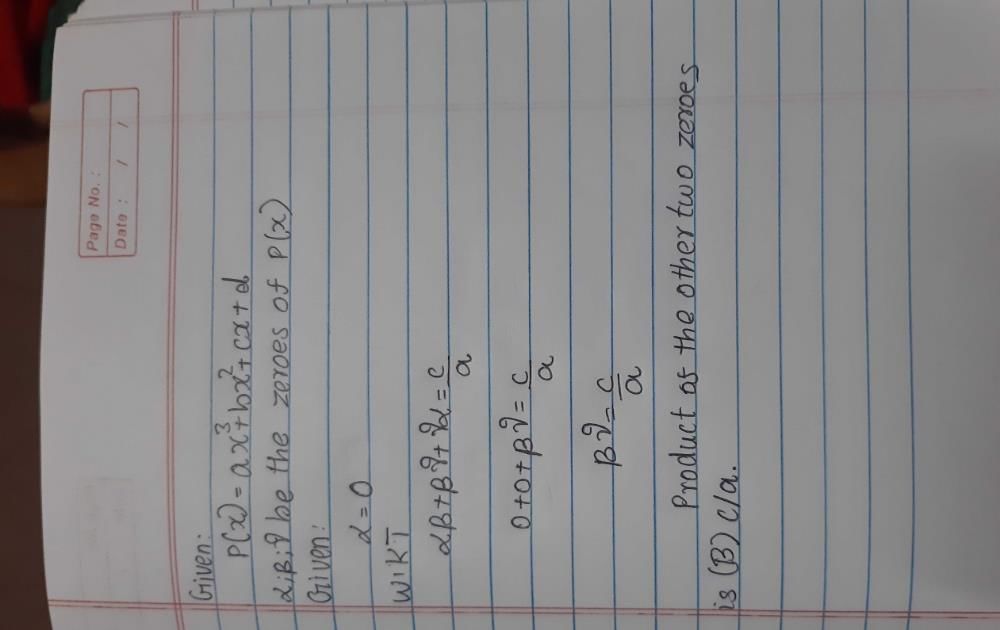 Page No. :
Date : / /
Given:
P(x) = ax³+bx²+cx+d
α,β,γ be the zeroes of P(x)
Given:
α = 0
W.K.T
αβ+βγ+γα = c/a
0+0+βγ = c/a
βγ = c/a
Product of the other two zeroes
is (B) c/a.